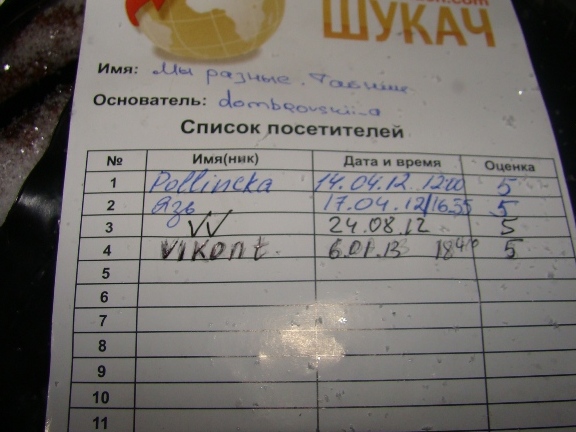 ШУКАЧ
Имя: Мы разные.
Основатель: dombrovskii-a
Список посетителей
№ Имя(ник) Дата и время Оценка
1 Pollincka 14.04.12 1200 5
2 Язь 17.04.12/16.55 5
3 VV 24.08.12 5
4 VIKOnt 6.01.13 18 40 5
5
6
7
8
9
10
11